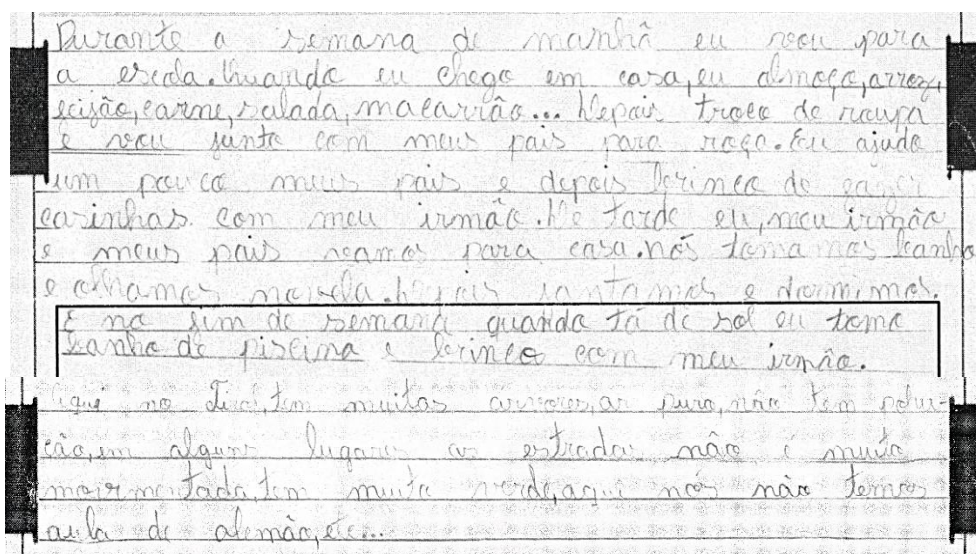 Durante a semana de manhã eu vou para
a escola. Quando eu chego em casa, eu almoço, arroz,
feijão, carne, salada, macarrão... Depois troco de roupa
e vou junto com meus pais para roça. Eu ajudo
um pouco meus pais e depois brinco de fazer
casinhas com meu irmão. De tarde eu, meu irmão
e meus pais vamos para casa. nós tomamos banho
e olhamos novela. Depois jantamos e dormimos.
E no fim de semana quando tá de sol eu tomo
banho de piscina e brinco com meu irmão.
Aqui no tem muitas arvores, ar puro, não tem polui-
ção, em alguns lugares as estradas não é muito
movimentada, tem muito verde, aqui nós não temos
aula de alemão, etc...